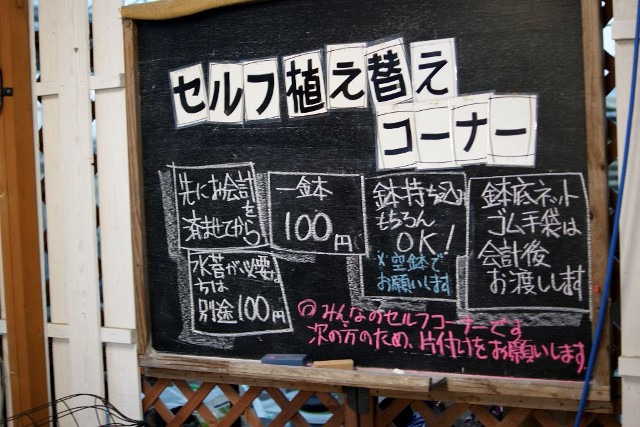 セルフ植え替え
コーナー
先にお会計
を
済ませてから
一鉢
100円
鉢持ち込み
もちろん
OK!
※空鉢で
お願いします
鉢底ネット
ゴム手袋は
会計後
お渡しします
水苔が必要な
方は
別途100円
みんなのセルフコーナーです
次の方のため、片付けをお願いします